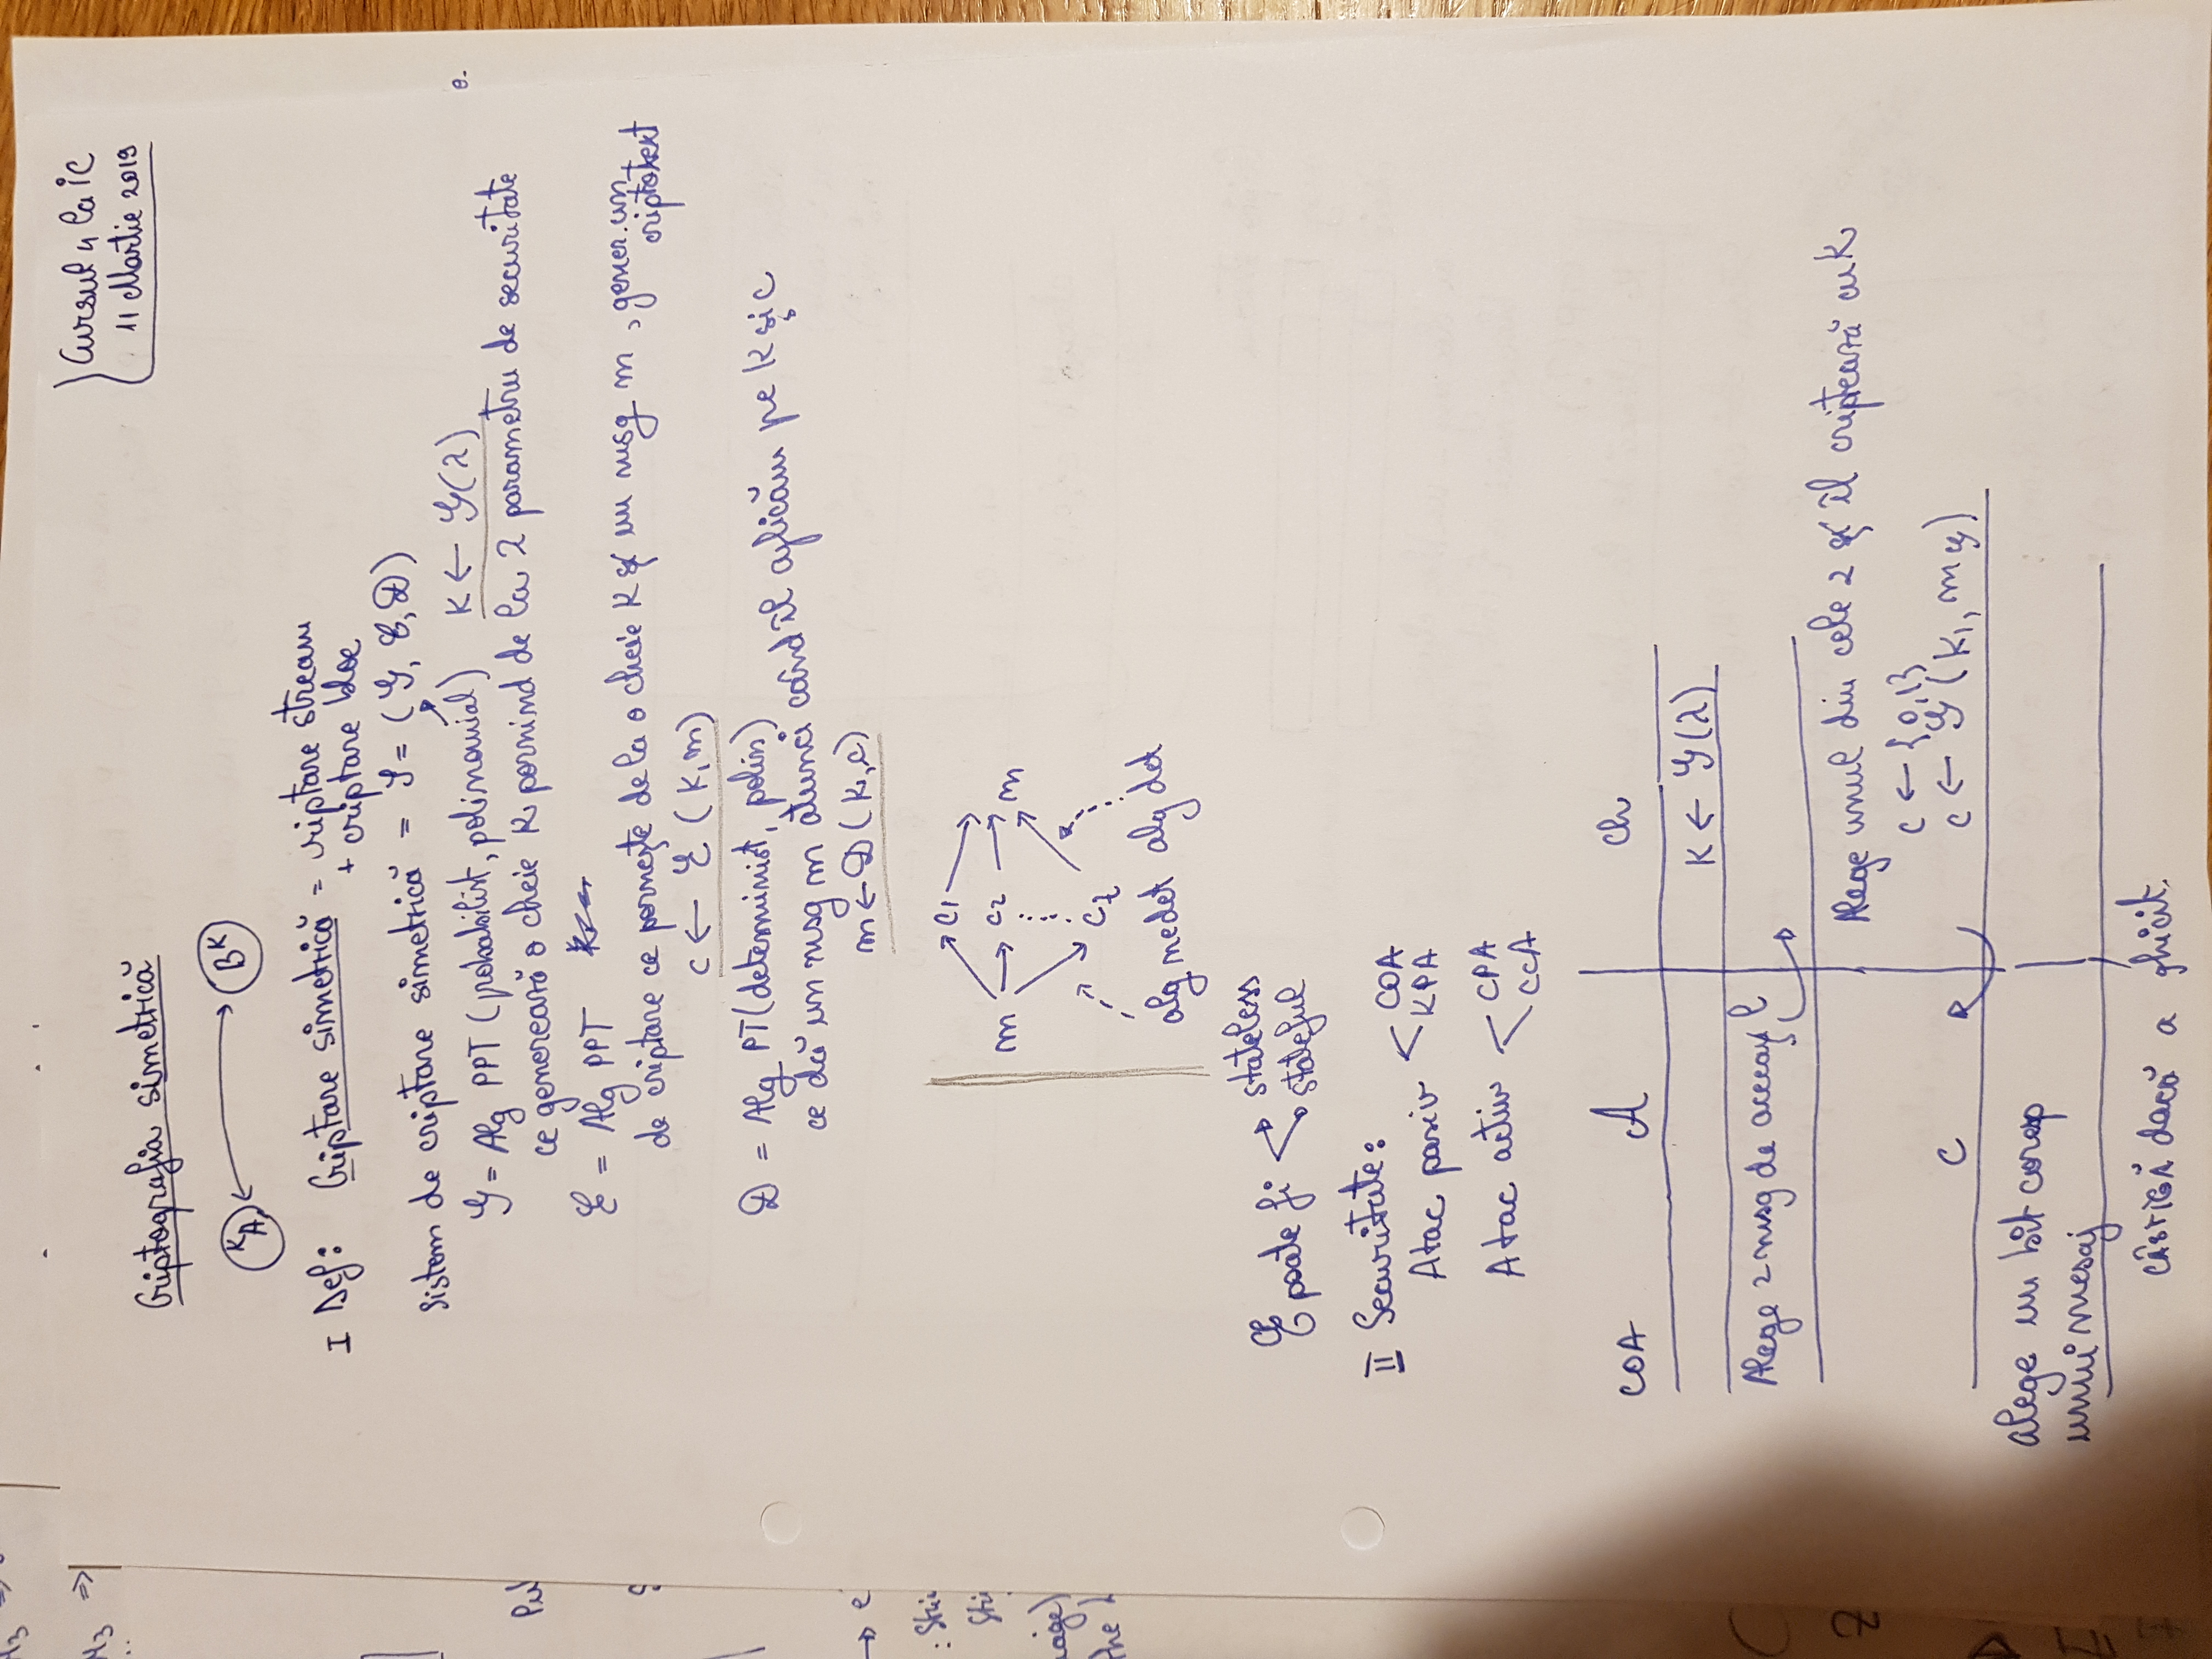 Cursul 4 la IC
11 Martie 2019
Criptografia simetrică
K A B K
I Def: Criptare simetrică = criptare stream
+ criptare bloc
Sistem de criptare simetrică = S = (G, E, D)
G = Alg PPT (probabilist, polinomial) K ← G(λ)
ce generează o cheie K pornind de la λ parametru de securitate
E = Alg PPT
de criptare ce pornește de la o cheie K și un msg m, gener. un
criptotext
c ← E (K, m)
D = Alg PT (determinist, polin)
ce dă un msg m atunci când îl aplicăm pe K și c
m ← D (K, c)
c1
m c2 m
alg nedet alg det
E poate fi stateless
stateful
II Securitate:
Atac pasiv COA
KPA
Atac activ CPA
CCA
COA A Ch
K ← G(λ)
Alege 2 msg de aceeași l
Alege unul din cele 2 și îl criptează cu K
c ← {0,1}
C c ← G (K,
alege un bit coresp
unui mesaj
CÂȘTIGĂ dacă a ghicit.
Pul
→ e
: Stri
Stri
the
M3 ⇒